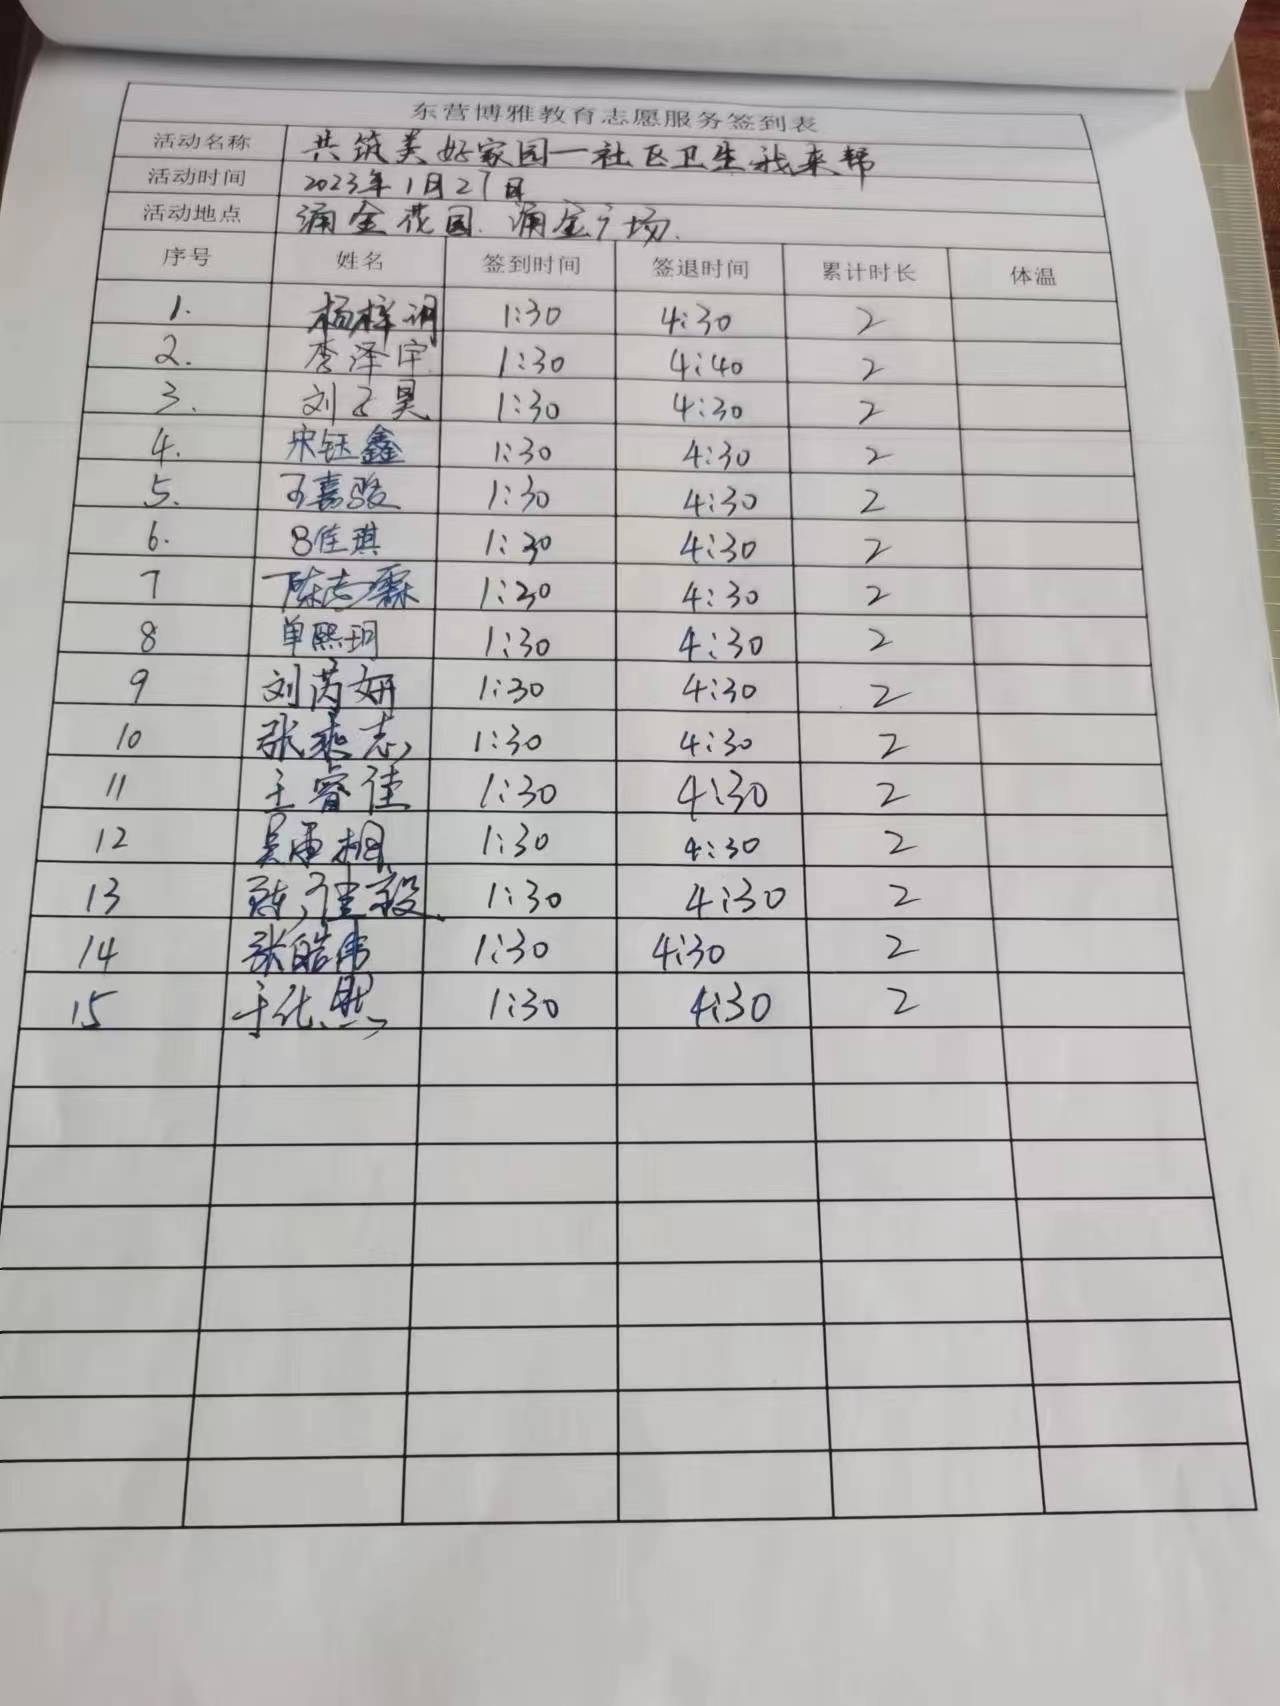 东营博雅教育志愿服务签到表
活动名称 共筑美好家园一社区卫生我来帮
活动时间 2023年1月27日
活动地点 涌金花园、涌金广场.
序号 姓名 签到时间 签退时间 累计时长 体温
1. 杨梓 1:30 4:30 2
2. 李泽宇 1:30 4:40 2
3. 刘子昊 1:30 4:30 2
4. 宋钰鑫 1:30 4:30 2
5. 王嘉骏 1:30 4:30 2
6. 佳琪 1:30 4:30 2
7 陈志霖 1:30 4:30 2
8 单熙玥 1:30 4:30 2
9 刘芮妍 1:30 4:30 2
10 张奕志 1:30 4:30 2
11 王睿佳 1:30 4:30 2
12 吴 1:30 4:30 2
13 陈佳毅 1:30 4:30 2
14 张皓 1:30 4:30 2
15 于化 1:30 4:30 2